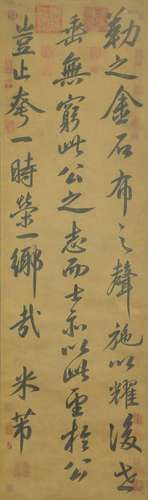 勒之金石布之聲施以耀後世
垂無窮此公之志而士亦以此望於公
豈止夸一時榮一鄉哉 米芾